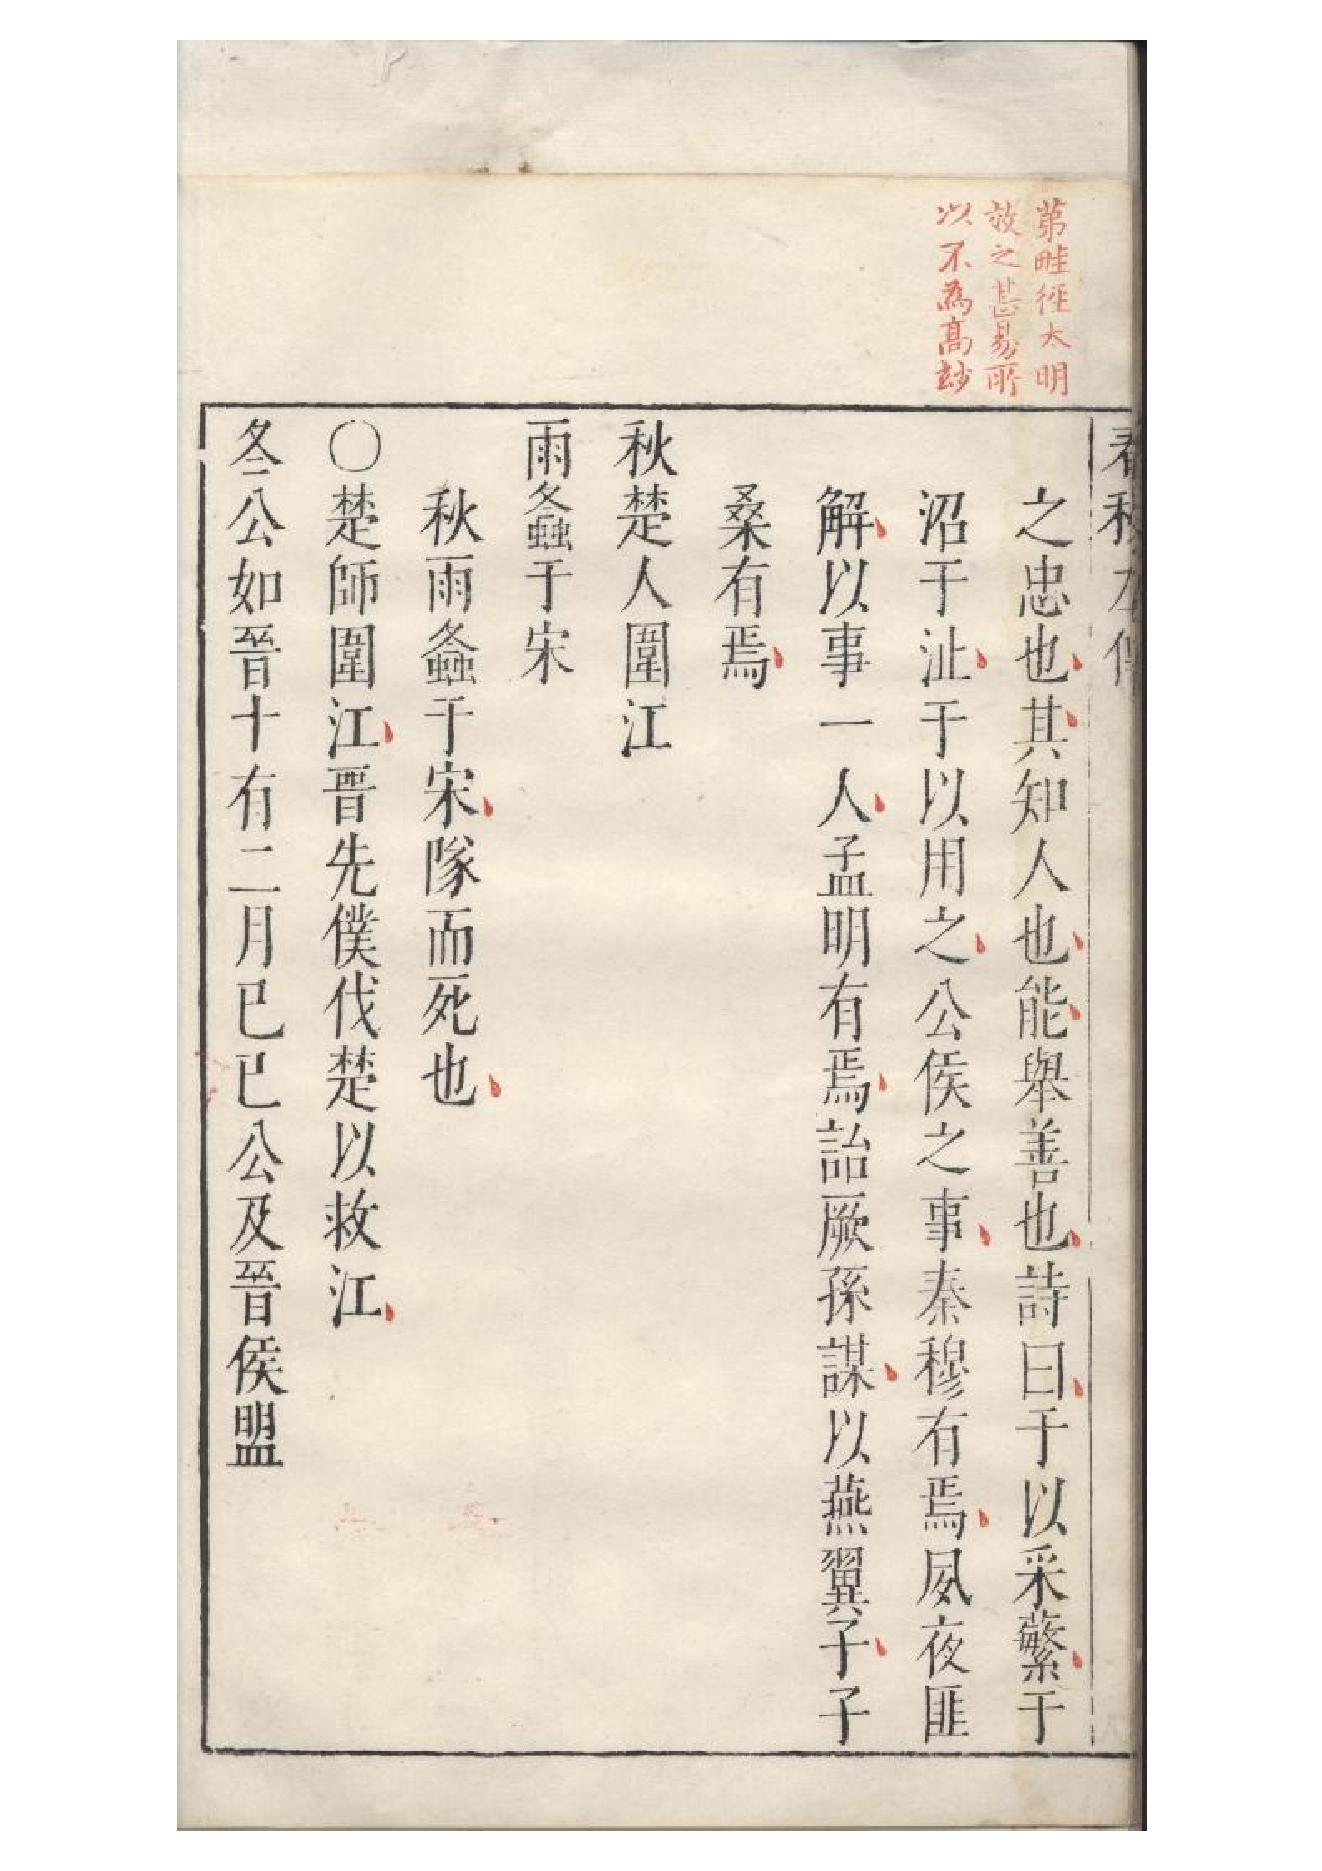 第畦徑太明
故之甚易所
以不為高玅
春秋左傳
之忠也其知人也能舉善也詩曰于以采蘩于
沼于沚于以用之公侯之事秦穆有焉夙夜匪
解以事一人孟明有焉詒厥孫謀以燕翼子子
桑有焉
秋楚人圍江
雨螽于宋
秋雨螽于宋隊而死也
〇楚師圍江晉先僕伐楚以救江
冬公如晉十有二月已巳公及晉侯盟